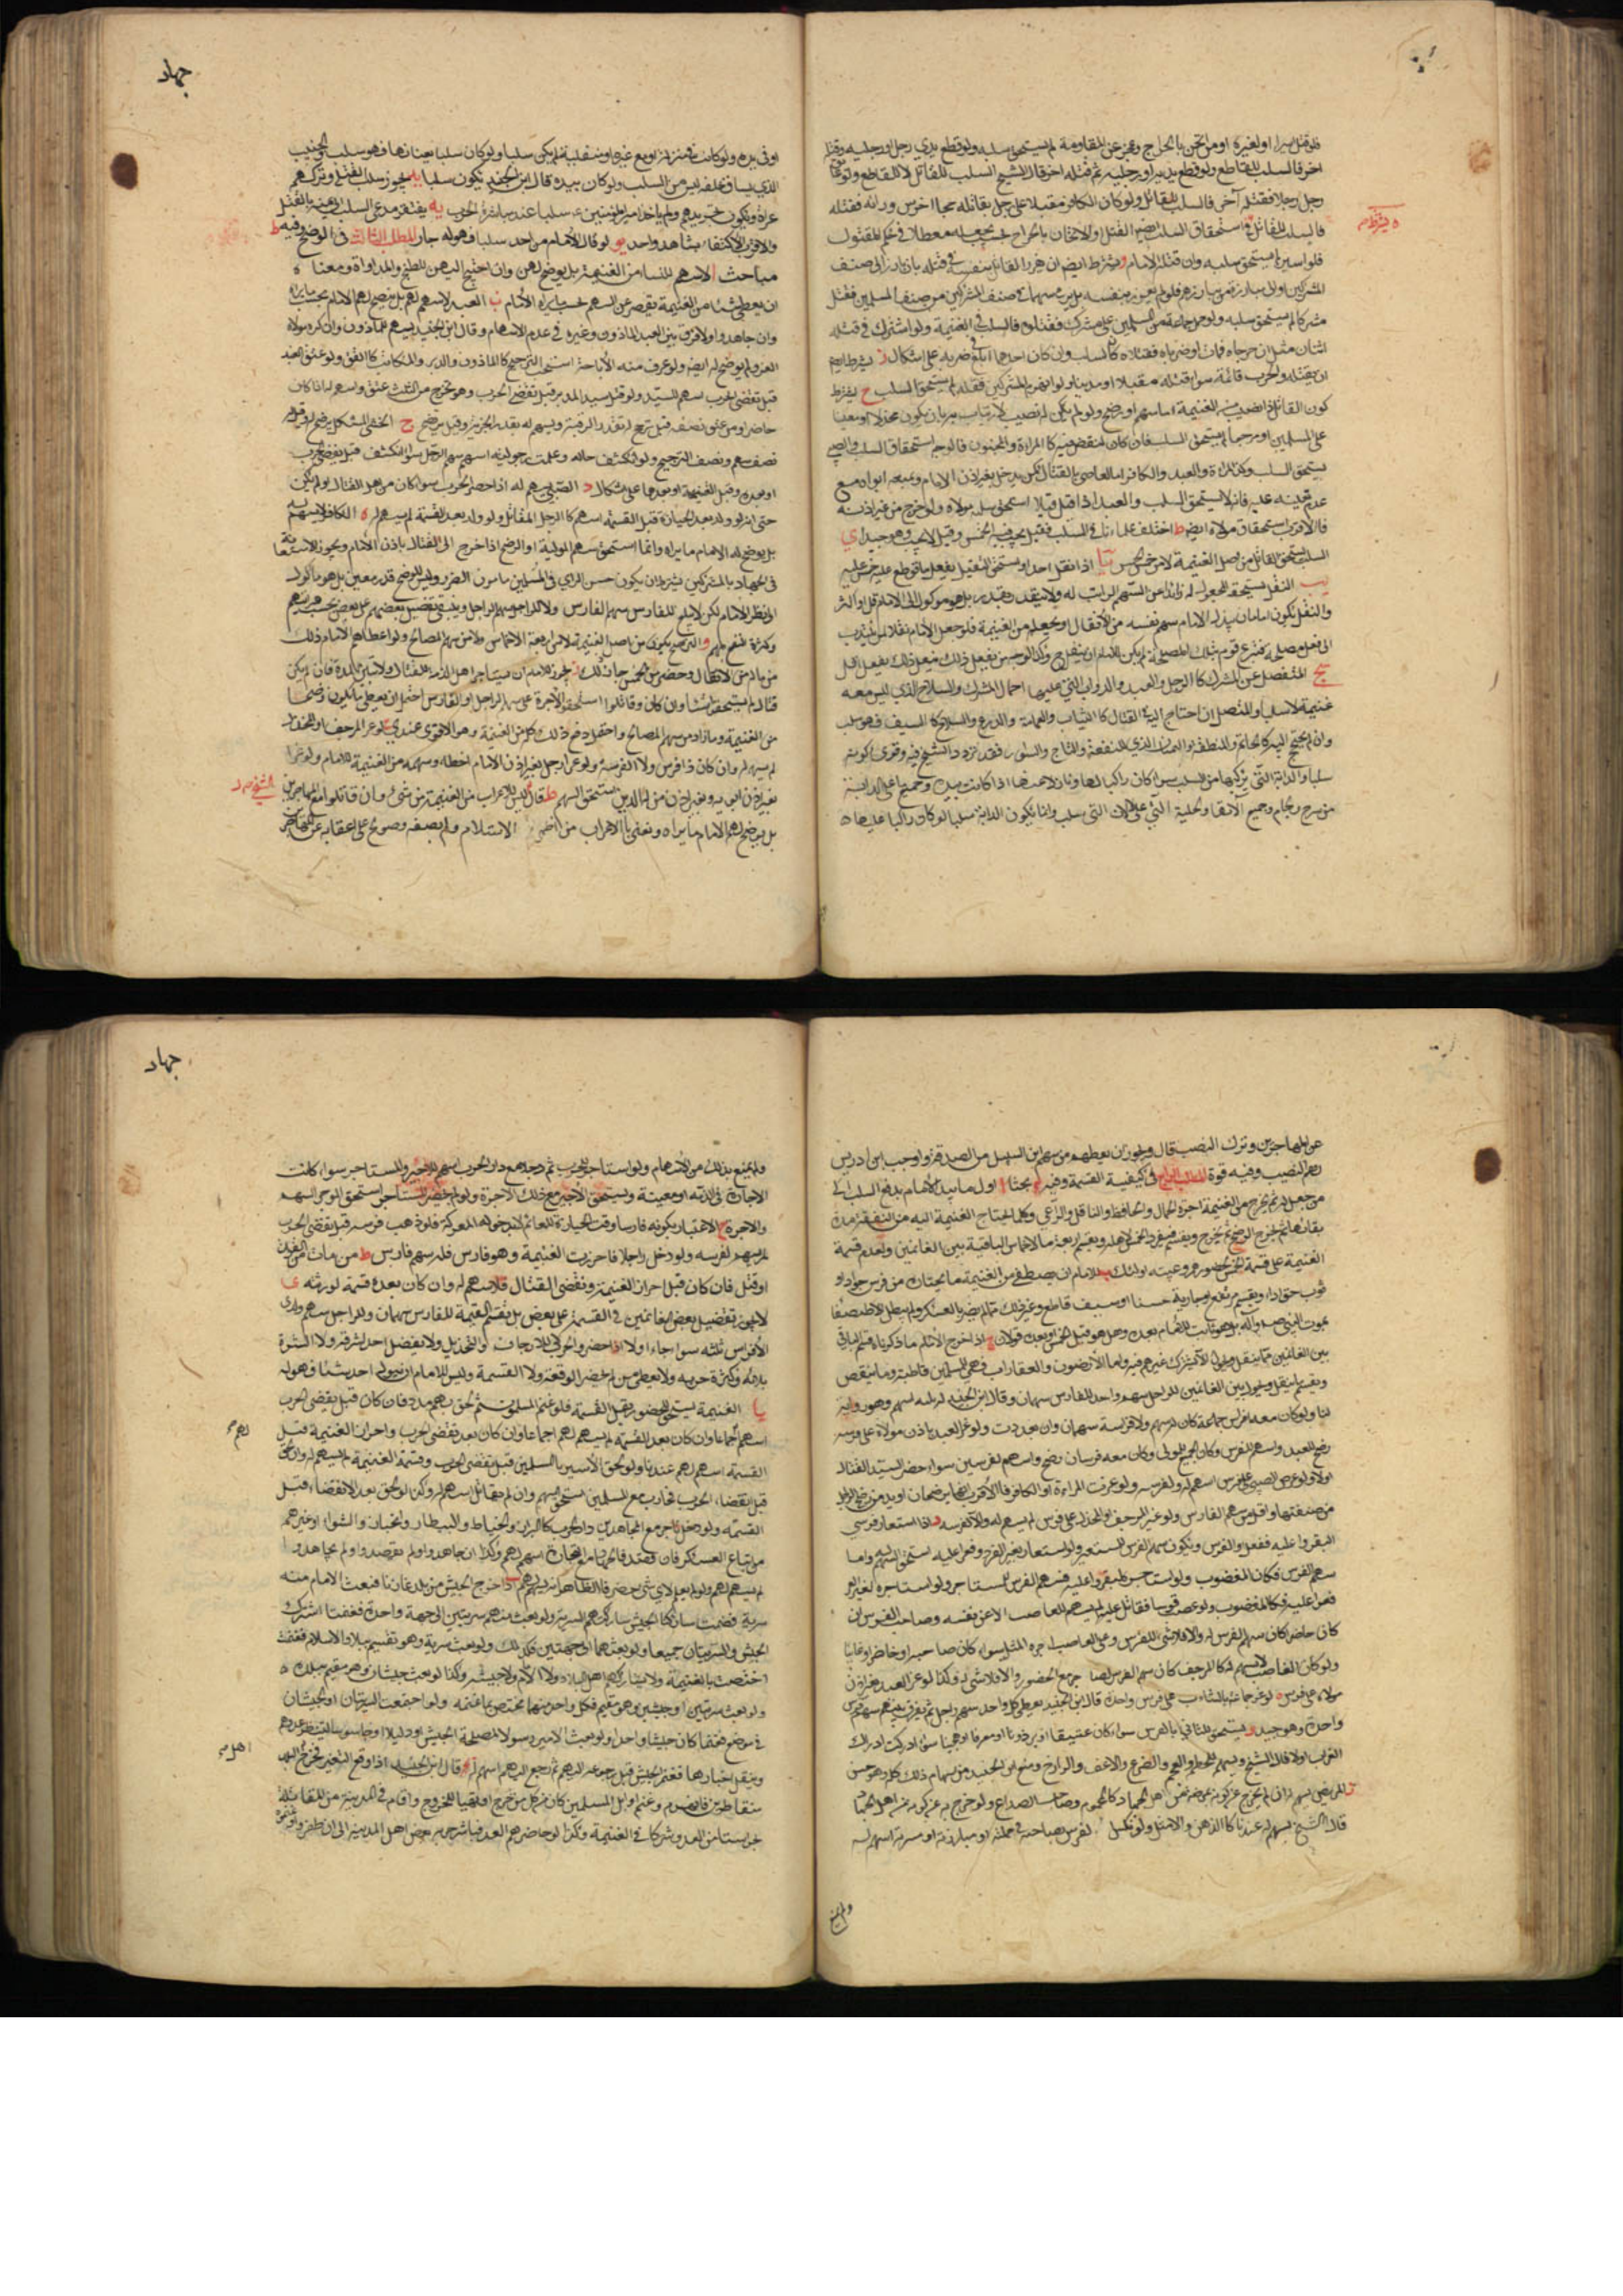 فلو قتل اسيرا له او لغيره او من اثخن بالجراح وعجز عن المقاومة لم يستحق سلبه ولو قطع يدي رجل او رجليه وقتله
اخر فالسلب للقاطع ولو قطع يديه او رجليه ثم قتله اخر قال الشيخ السلب للقاتل لا للقاطع ولو
رجل رجلا فقتله آخر فالسلب للقاتل ولو كان الكافر مقبلا على رجل يقاتله فجاء اخر من ورائه فقتله
ه يشترط
فالسلب للقاتل واستحقاق السلب القتل او الاثخان بالجراح بحيث يجعله معطلا في حكم المقتول
فلو اسر لم يستحق سلبه وان قتله الامام و يشترط ايضا ان يغرر القاتل بنفسه في قتله بان يبارز الى صف
المشركين او الى مبارزة من يبارزهم فلو لم يغرر بنفسه بل رمى سهما في صف المشركين من صف المسلمين فقتل
مشركا لم يستحق سلبه ولو حمل جماعة من المسلمين على مشرك فقتلوه فالسلب في الغنيمة ولو اشترك في قتله
اثنان مثل ان جرحاه فمات او ضرباه فقتلاه كان السلب وان كان احدهما ابلغ في ضربه على اشكال ز يشترط ايضا
ان يقتله والحرب قائمة سواء قتله مقبلا او مدبرا ولو انهزم المشركون فقتله لم يستحق السلب ح يشترط
كون القاتل ذا نصيب من الغنيمة اما سهم او رضخ ولو لم يكن له نصيب لارتياب به بان يكون مخذلا او معينا
على المسلمين او مرجفا لم يستحق السلب فان كان لنقص فيه كالمراة والمجنون فالوجه استحقاق السلب والصبي
يستحق السلب وكذا المراة والعبد والكافر اما العاصي بالقتال كمن يدخل بغير اذن الامام ومنعه ابواه مع
عدم تعينه عليه فانه لا يستحق السلب والعبد اذا قتل قتيلا استحق سلبه مولاه ولو خرج من غير اذنه
فالاقرب استحقاق مولاه ايضا ط اختلف علماؤنا في السلب فقيل يجب فيه الخمس وقيل لا يجب وهو جيد ي
السلب يستحقه القاتل من اصل الغنيمة لا من خمس الخمس يا اذا نفل احدا يستحق النفيل بفعل ما
يب النفل يستحقه المجعول له زائدا عن السهم الراتب له ولا يتقدر بقدر بل هو موكول الى الامام قل او اكثر
والنفل يكون اما بان يبذل الامام سهم نفسه من الانفال او يجعله من الغنيمة فلو جعل الامام نفلا لمن ينتدب
الى فعل مصلحة فتبرع قوم بتلك المصلحة لم يكن للامام ان ينفل وكذا لو وجد من يفعل ذلك
يج المنفصل عن المشرك كالرحل والعبيد والدواب التي عليها احمال المشرك والسلاح الذي ليس معه
غنيمة لا سلب والمتصل ان احتاج اليه في القتال كالثياب والعمامة والدرع والسلاح كالسيف فهو سلب
وان لم يحتج اليه كالخاتم والمنطقة والهميان الذي للنفقة والتاج والسوار فقد تردد الشيخ فيه وقوى كونه
سلبا والدابة التي يركبها من السلب سواء كان راكبا لها او نازلا عنها اذا كانت بيده وجميع ما على الدابة
من سرج ولجام وجميع الاتها وحلية التي على الالات سلب وانما يكون الدابة سلبا لو كان راكبا عليها
جهاد
او في يده ولو كانت في منزله او مع غيره او منفلتة لم يكن سلبا ولو كان سلبا بعنانها فهو سلب والجنيب
الذي يساق خلفه ليس من السلب ولو كان بيده قال ابن الجنيد يكون سلبا يد يجوز سلب القتلى وتركهم
عراة ويكره تجريدهم سلبا عند مباشرة الحرب يه يفتقر مدعي السلب الى بينة بالقتل
والاقرب الاكتفاء بشاهد واحد يو لو قال الامام من اخذ سلبا فهو له جاز المطلب الثالث في الرضخ وفيه ط
مباحث ا لا سهم للنساء من الغنيمة بل يرضخ لهن وان احتيج اليهن للطبخ والمداواة ومعناه
ان يعطي شيئا من الغنيمة يقصر عن السهم بحسب ما يراه الامام ب العبد لا سهم لهم بل يرضخ لهم الامام بحسب ما يراه
وان جاهدوا ولا فرق بين العبد الماذون وغيره في عدم الاسهام وقال ابن الجنيد يسهم للماذون وان كره مولاه
الغزو لم يرضخ له ايضا ولو عرف منه الاباحة استحب الترضيخ كالماذون والمدبر والمكاتب كالقن ولو عتق العبد
قبل تقضي الحرب اسهم للسيد ولو قتل سيد المدبر قبل تقضي الحرب وهو يخرج من الثلث عتق واسهم له اذا كان
حاضرا ومن عتق نصفه قيل يرضخ له بقدر الرقية ويسهم له بقدر الحرية وقيل يرضخ ج الخنثى المشكل يرضخ له وقيل له
نصف سهم ونصف الترضيخ ولو انكشف حاله وعلمت رجوليته اسهم سهم الرجل سواء انكشف قبل تقضي الحرب
او بعده وقبل الغنيمة او بعدها على اشكال د الصبي يسهم له اذا حضر الحرب سواء كان من اهل القتال او لم يكن
حتى انه لو ولد بعد الحيازة قبل القسمة اسهم كالرجل المقاتل ولو ولد بعد القسمة لم يسهم له ه الكافر لا يسهم له
بل يرضخ له الامام ما يراه وانما استحق سهم المولفة او الرضخ اذا خرج الى القتال باذن الامام ويجوز الاستعانة
في الجهاد بالمشركين بشرط ان يكون حسن الراي في المسلمين مامون الضرر وليس للرضخ قدر معين بل هو موكول
الى نظر الامام لكن لا يبلغ للفارس سهم الفارس ولا للراجل سهم الراجل وينبغي تفضيل بعضهم على بعض بحسب
وكثرة النفع بهم و الرضخ يكون من اصل الغنيمة لا من اربعة الاخماس ولا من سهم المصالح ولو اعطاهم الامام ذلك
من ماله من الانفال وحصته من الخمس جاز له ذلك ز يجوز للامام ان يستاجر اهل الذمة للقتال ولا تبين المدة فان لم يكن
قتال لم يستحقوا شيئا وان كان وقاتلوا استحقوا الاجرة على سهم الراجل او الفارس احتمل ان يعطي ما يكون رضخا
من الغنيمة وما زاد من سهم المصالح واحتمل دفع ذلك كله من الغنيمة وهو الاقوى عندي ح لو غزا المرجف او المخذل
لم يسهم له وان كان ذا فرس ولا لفرسه ولو غزا رجل بغير اذن الامام اخطا وسهمه من الغنيمة للامام ولو غزا
بغير اذن ابويه وبغير اذن من له الدين استحق السهم ط قال ليس للاعراب من الغنيمة شيء وان قاتلوا مع المهاجرين
الشيخ ره
بل يرضخ لهم الامام ما يراه ونعني بالاعراب من اظهر الاسلام ولم يصفه وصولح على اعفائه عن المهاجرة
عن المهاجرين وترك النصيب قال ويجوز ان يعطيهم من سهم ابن السبيل من الصدقة واوجب ابن ادريس
لهم النصيب وفيه قوة المطلب الرابع في كيفية القسمة وفيه بحثا ا اول ما يبدا الامام بدفع السلب الى
من جعل له ثم يخرج من الغنيمة اجرة الحمال والحافظ والناقل والراعي وكلما يحتاج الغنيمة اليه من النفقة مدة
بقائها ثم يخرج الرضخ ثم يخرج ويقسم فيفرد الخمس لاهله ويقسم اربعة الاخماس الباقية بين الغانمين وتقدم قسمة
الغنيمة على قسمة الخمس لحضورهم وغيبة اولئك ب للامام ان يصطفي من الغنيمة ما يختاره من فرس جواد او
ثوب او جارية حسنا او سيف قاطع وغير ذلك ما لم يضر بالعسكر ولم يبطل الاصطفاء
بموت النبي صلى الله عليه واله بل هو ثابت للامام بعده وهل هو قبل الخمس او بعده قولان ج اذا اخرج الامام ما ذكرناه قسم الباقي
بين الغانمين مما ينقل ويحول لا يشركهم غيرهم فيه واما الارضون والعقارات فهي للمسلمين قاطبة وما
ويقسم ما ينقل ويحول بين الغانمين للراجل سهم واحد للفارس سهمان وقال ابن الجنيد له ثلثة اسهم وهو رواية
لنا ولو كان معه افراس جماعة كان له سهم ولافراسه سهمان وان تعددت ولو غزا العبد باذن مولاه على فرسه
رضخ للعبد واسهم للفرس وكان الجميع للمولى ولو كان معه فرسان رضخ واسهم لفرسين سواء حضر السيد القتال
اولا ولو غزا الصبي على فرس اسهم له ولفرسه ولو غزت المراة او الكافر فالاقرب انهما يرضخان
من صنفهما واقل من سهم الفارس ولو غزا المرجف او المخذل على فرس لم يسهم له ولا لفرسه د اذا استعار فرسا
ليغزوا عليه ففعل والفرس ويكون سهم الفرس للمستعير ولو استعاره لغير الغزو فغزا عليه استحق السهم له واما
سهم الفرس فكالمغصوب ولو استاجره ليغزوا عليه فسهم الفرس للمستاجر ولو استاجره لغير الغزو
فغزا عليه فكالمغصوب ولو غصب فرسا فقاتل عليه لم يسهم للغاصب الا عن نفسه وصاحب الفرس ان
كان حاضرا كان سهم الفرس له والا فلا شيء للفرس وعلى الغاصب اجرة المثل سواء كان صاحبه حاضرا او غائبا
ولو كان الغاصب لا يسهم له كالمرجف كان سهم الفرس لصاحبه مع الحضور والا فلا شيء له وكذا لو غزا العبد بغير اذن
مولاه على فرسه ه لو غزا جماعة بالتناوب على فرس واحدة قال ابن الجنيد يعطى كل واحد سهم راجل ثم يفرق بينهم سهم فرس
واحدة وهو جيد و يستحق للثاني بالفرس سواء كان عتيقا او برذونا او مقرفا او هجينا سواء ادركت ادراك
العراب اولا قال الشيخ ويسهم للحطم والقحم والضرع والاعجف والرازح ومنع ابن الجنيد من سهام ذلك كله وهو حسن
ز المريض يسهم له ان لم يخرج عن كونه بمرضه من اهل الجهاد كالمحموم وصاحب الصداع ولو خرج به عن كونه من اهل الجهاد
قال الشيخ يسهم له عندنا كالزمن والاشل ولو نكس لفرس بصاحبه في حملته او مبارزته او مسرية اسهم له
ولم يمنع
جهاد
ولم يمنع بذلك من الاسهام ولو استاجر للحرب ثم دخلا مع دار الحرب اسهم للاجير والمستاجر سواء كانت
الاجارة في الذمة او معينة ويستحق الاجير مع ذلك الاجرة ولو لم يحضر المستاجر استحق الموجر السهم
والاجرة ح الاعتبار بكونه فارسا وقت الحيازة للغنائم لا بدخوله المعركة فلو ذهب فرسه قبل تقضي الحرب
لم يسهم لفرسه ولو دخل راجلا فاحرزت الغنيمة وهو فارس فله سهم فارس ط من مات من الغزاة
او قتل فان كان قبل احراز الغنيمة وتقضي القتال فلا سهم له وان كان بعده قسمه لورثته ي
لا يجوز تفضيل بعض الغانمين في القسمة على بعض بل يقسم القيمة للفارس سهمان وللراجل سهم ولذي
الافراس ثلثة سواء جاء اولا اذا حضر والحرب للدرجات ولا يفضل احد لشرفه ولا لشدة
بلائه وكثرة حربه ولا يعطى من لم يحضر الوقعة ولا القسمة وليس للامام ان يقول من اخذ شيئا فهو له
يا الغنيمة يستحق بالحضور وقبل القسمة فلو غنم المسلمون ثم لحق بهم مدد فان كان قبل تقضي الحرب
اسهم لهم اجماعا وان كان بعد القسمة لم يسهم لهم اجماعا وان كان بعد تقضي الحرب واحراز الغنيمة قبل
لهم
القسمة اسهم لهم عندنا ولو لحق الاسير بالمسلمين قبل تقضي الحرب وقسمة الغنيمة اسهم له وان لحق
قبل انقضاء الحرب فحارب مع المسلمين استحق السهم وان لم يقاتل اسهم له وكذا لو لحق بعد الانقضاء قبل
القسمة ولو دخل تاجر مع المجاهدين دار الحرب كالبزاز والخياط والبيطار والخباز والشواء وغيرهم
من اتباع العسكر فان قصد الجهاد مع التجارة اسهم لهم وكذا ان جاهدوا ولم يقصدوا ولم يجاهدوا
لم يسهم لهم ولو لم يعلم لاي شيء حضر فالظاهر انه يسهم لهم يب اذا خرج الجيش من بلد غازيا فبعث الامام منه
سرية فغنمت شاركها الجيش ولو غنم الجيش شاركهم السرية ولو بعث منهم سريتين الى جهة واحدة فغنمتا اشترك
الجيش والسريتان جميعا ولو بعثهما الى جهتين فكذلك ولو بعث سرية وهو مقيم ببلاد الاسلام فغنمت
اختصت بالغنيمة ولا يشاركهم اهل البلد ولا الامام ولا جيشه وكذا لو بعث جيشا وهو مقيم ببلده
ولو بعث سريتين او جيشين وهو مقيم فكل واحد منهما يختص بما غنمه ولو اجتمعت السريتان او الجيشان
في موضع فغنما كان جيشا واحدا ولو بعث الامير رسولا لمصلحة الجيش او دليلا او جاسوسا لينظر عددهم
اهل
وينقل اخبارها فغنم الجيش قبل رجوعه اليهم ثم رجع اليهم اسهم له قال ابن الجنيد اذا وقع النفير فخرج اليهم
متقاطرين فانهزم وغنم اوائل المسلمين كان فيه كل من خرج او تهيا للخروج واقام في المدينة من المقاتلة
حراستها من العدو شركاء في الغنيمة وكذا لو حاضرهم العدو فباشر حربه بعض اهل المدينة الى ان ظفروا